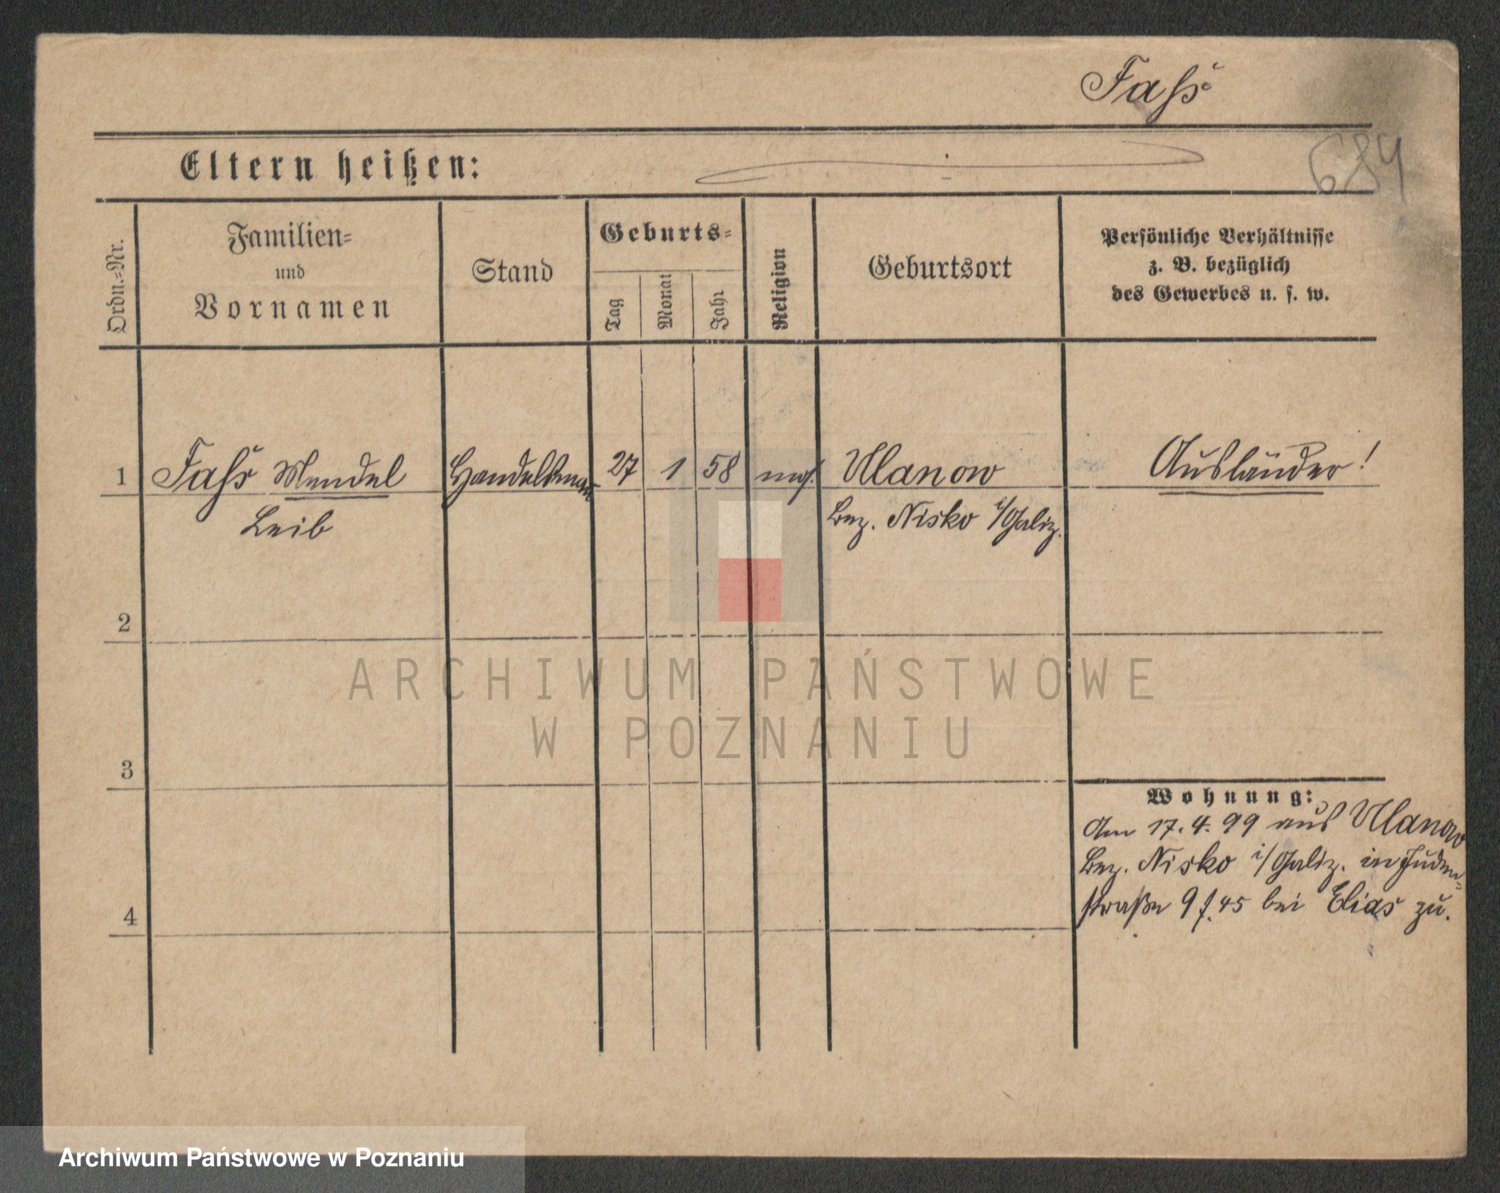 Fass
684
Eltern heißen:
Ordn.-Nr.
Familien-
und
Vornamen
Stand
Geburts-
Tag
Monat
Jahr
Religion
Geburtsort
Persönliche Verhältnisse
z. B. bezüglich
des Gewerbes u. s. w.
1 Fass Mendel Handelsmann 27 1 58 mos. Ulanow Ausländer!
Leib Bez. Nisko i/Galiz.
2
ARCHIWUM PAŃSTWOWE
W POZNANIU
3
Wohnung:
Am 17.4.99 aus Ulanow
Bez. Nisko i/Galiz. in Juden-
4
straße 9 f. 45 bei Elias zu.
Archiwum Państwowe w Poznaniu